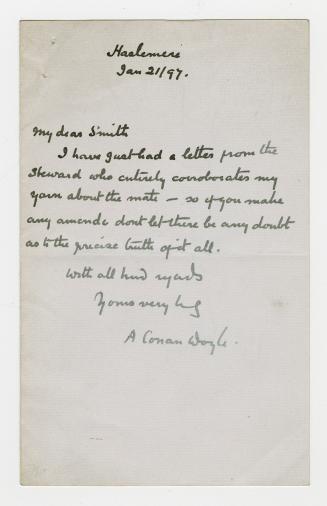 Haslemere
Jan 21/97.
My dear Smith
I have just had a letter from the
Steward who entirely corroborates my
yarn about the mate – so if you make
any amende dont let there be any doubt
as to the precise truth of it all.
With all kind regards
Yours very truly
A Conan Doyle.